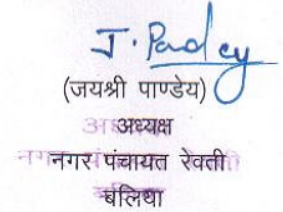 J. Pandey
(जयश्री पाण्डेय)
अध्यक्ष
नगर पंचायत रेवती
बलिया